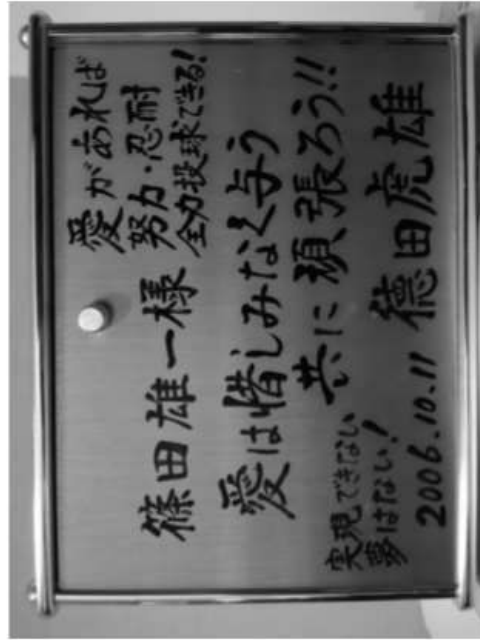 愛があれば
努力・忍耐
全力投球できる!
篠田雄一様
愛は惜しみなく与う
共に頑張ろう!!
実現できない
夢はない!
2006.10.11 德田虎雄